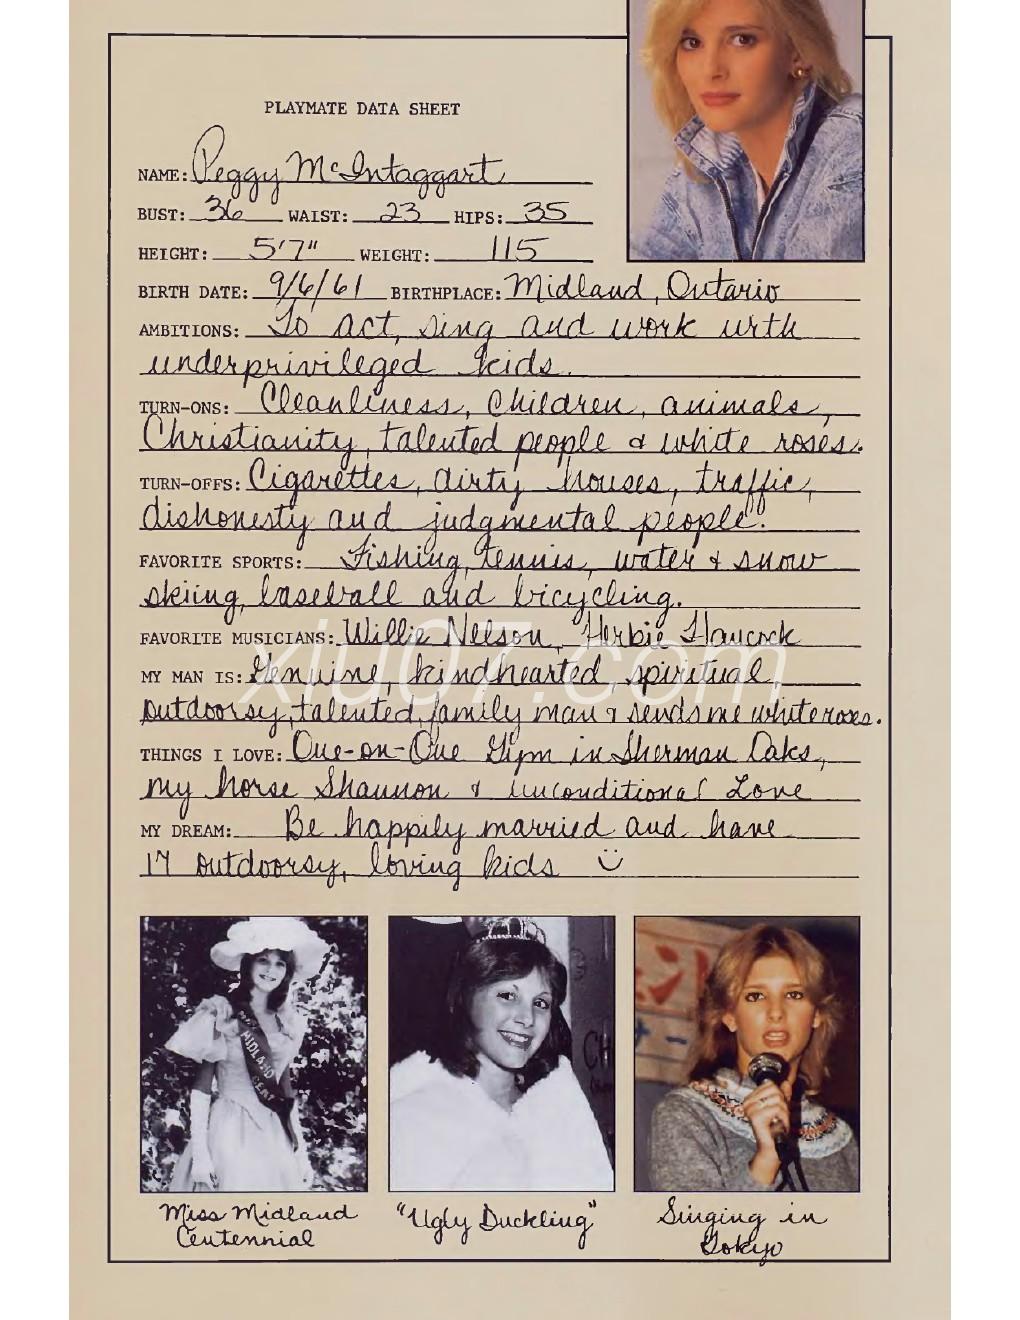 PLAYMATE DATA SHEET
NAME: Peggy McIntaggart
BUST: 36 WAIST: 23 HIPS: 35
HEIGHT: 5'7" WEIGHT: 115
BIRTH DATE: 9/6/61 BIRTHPLACE: Midland, Ontario
AMBITIONS: To act, sing and work with
underprivileged kids.
TURN-ONS: Cleanliness, children, animals,
Christianity, talented people & white roses.
TURN-OFFS: Cigarettes, dirty houses, traffic,
dishonesty and judgmental people.
FAVORITE SPORTS: Fishing, tennis, water & snow
skiing, baseball and bicycling.
FAVORITE MUSICIANS: Willie Nelson, Herbie Hancock
xiu07.com
MY MAN IS: Genuine, kindhearted, spiritual,
outdoorsy, talented, family man & sends me white roses.
THINGS I LOVE: One-on-One Gym in Sherman Oaks,
my horse Shannon & unconditional Love
MY DREAM: Be happily married and have
17 outdoorsy, loving kids ü
MIDLAND
Miss Midland
Centennial
"Ugly Duckling"
Singing in
Tokyo